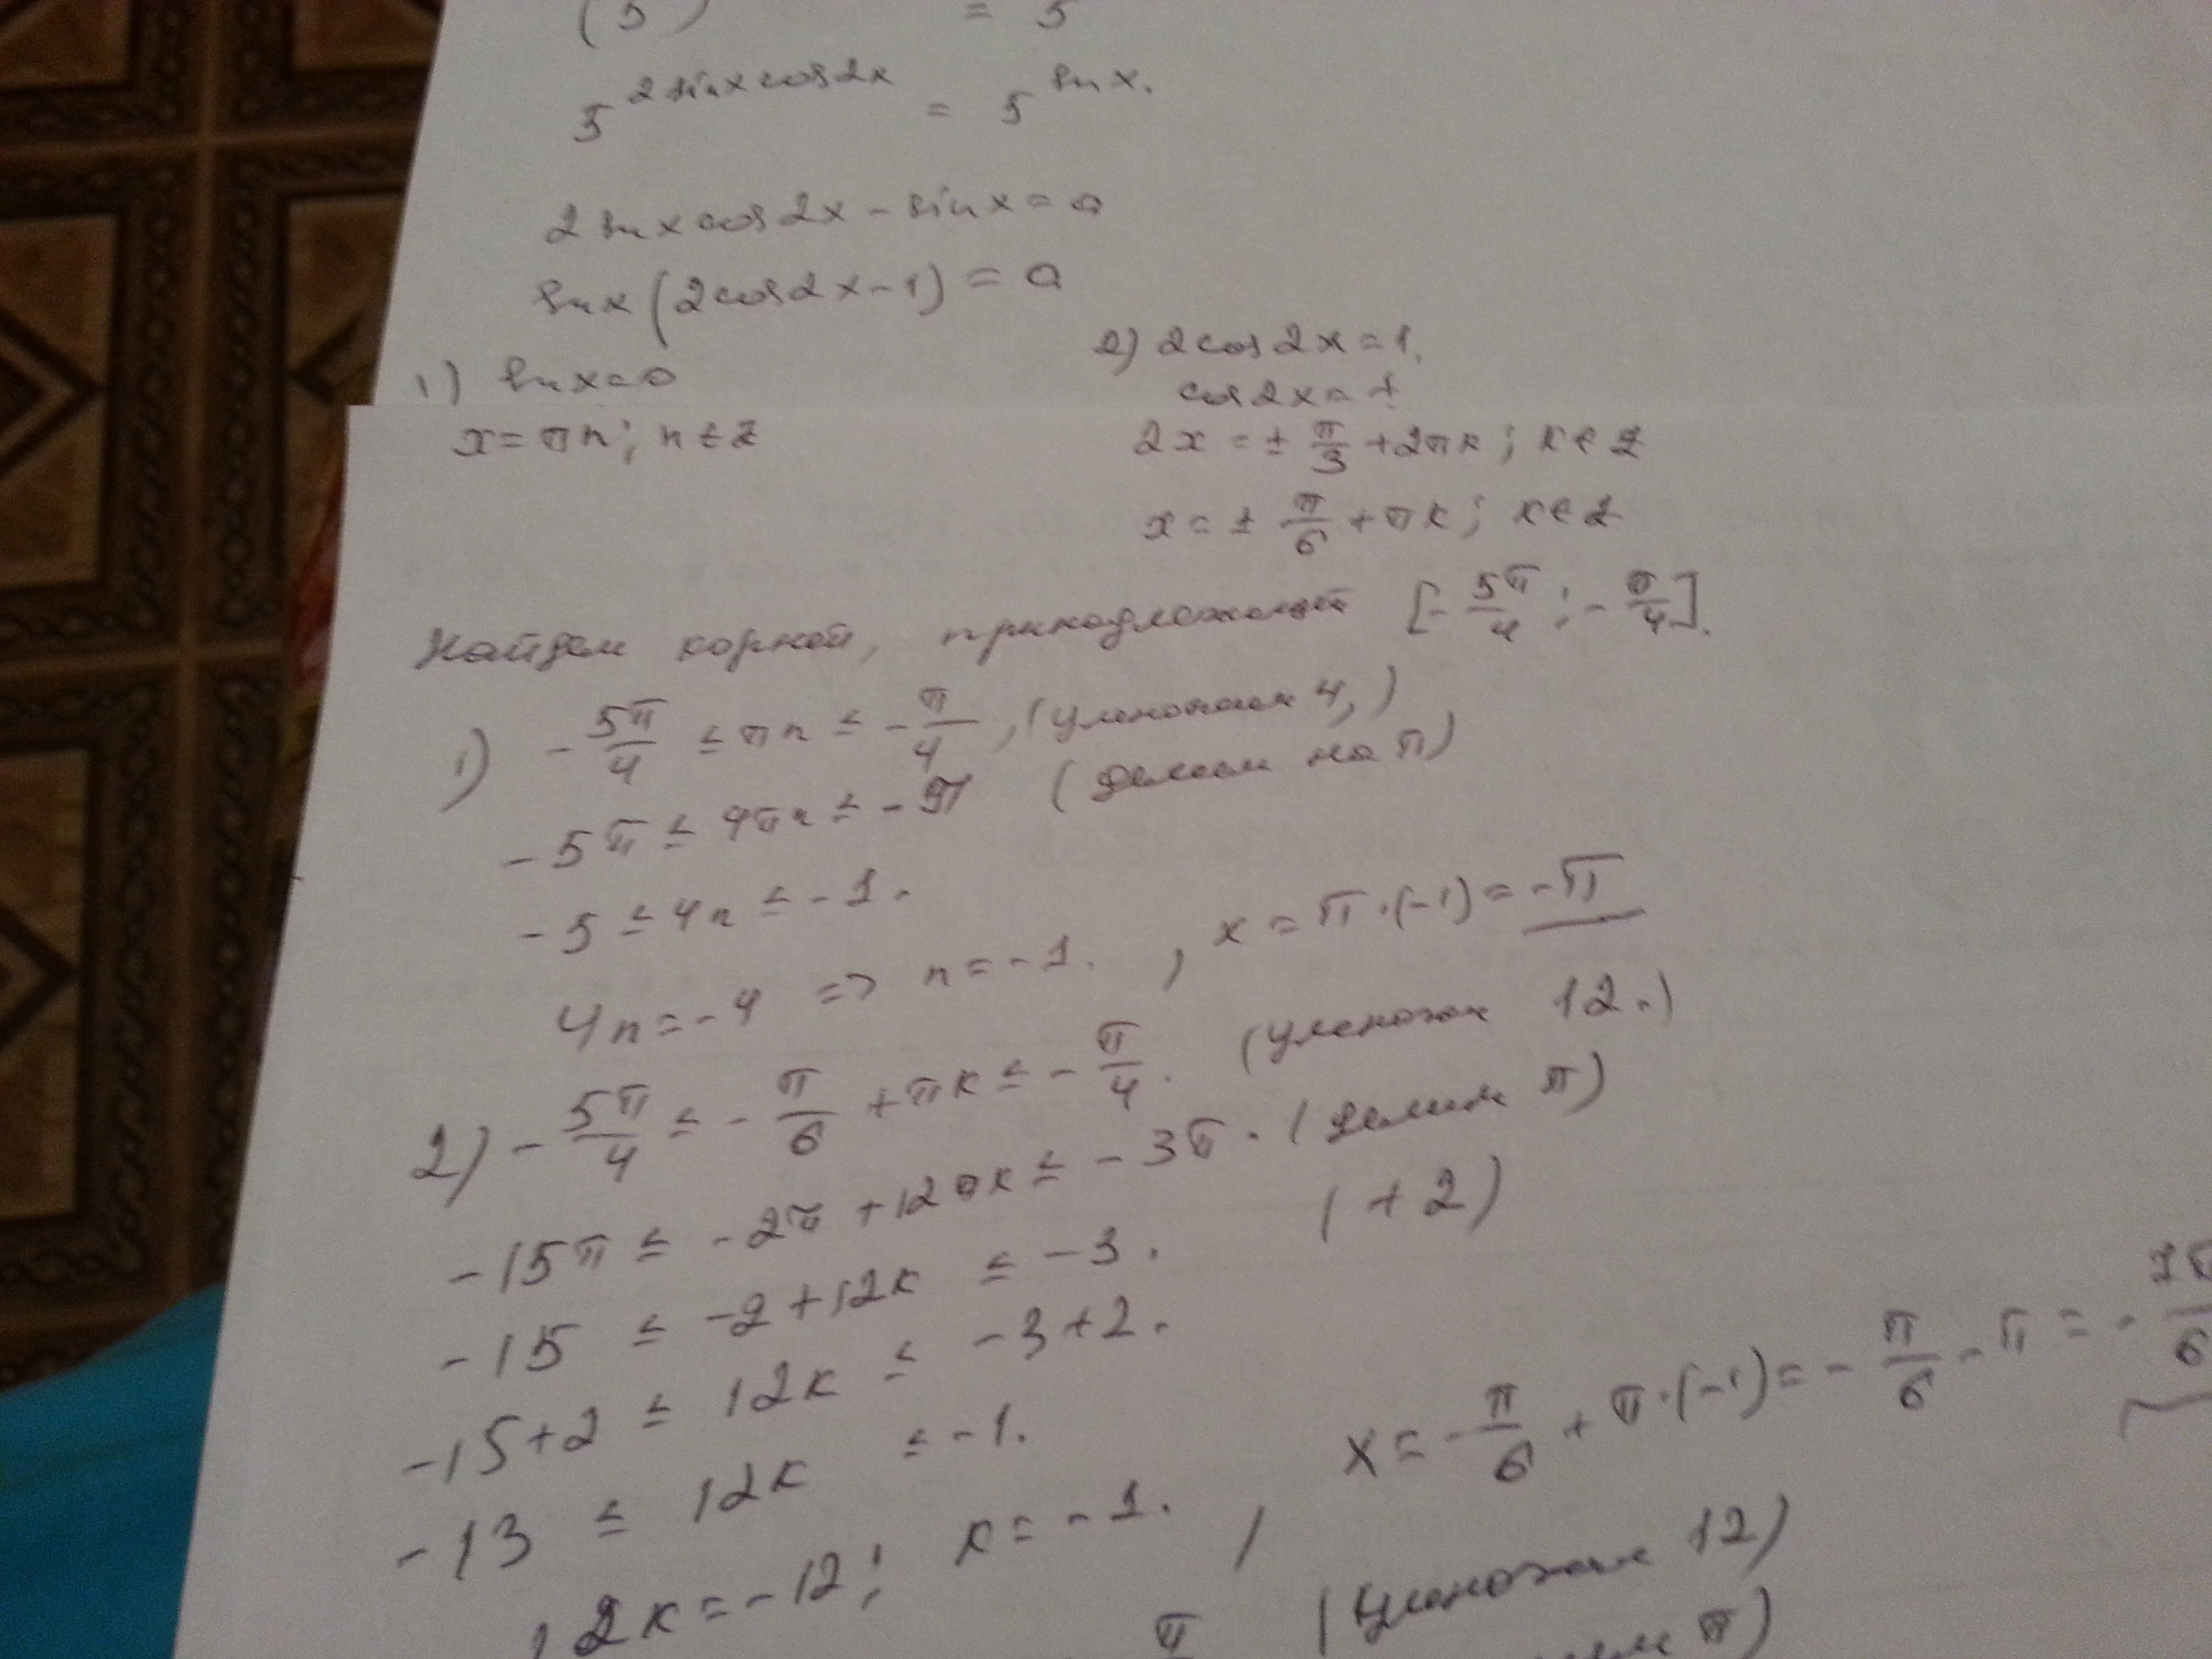 (5) = 5
5^{2 sinx cos2x} = 5^{sin x}.
2 sin x cos 2x - sin x = 0
sin x (2cos 2x - 1) = 0
1) sin x = 0
2) 2cos 2x = 1.
cos 2x =
x = πn; n ∈ Z
2x = ± π/3 + 2πk; k ∈ Z
x = ± π/6 + πk; k ∈ Z
Найдем корней, принадлежащей [-5π/4; -π/4].
1) -5π/4 ≤ πn ≤ -π/4, (умножаем 4,)
-5π ≤ 4πn ≤ -π (делим на π)
-5 ≤ 4n ≤ -1.
4n = -4 => n = -1. , x = π·(-1) = -π
2) -5π/4 ≤ -π/6 + πk ≤ -π/4. (умножим 12.)
-15π ≤ -2π + 12πk ≤ -3π. (делим π)
-15 ≤ -2 + 12k ≤ -3. (+2)
-15+2 ≤ 12k ≤ -3+2.
-13 ≤ 12k ≤ -1.
12k = -12; k = -1. , x = -π/6 + π·(-1) = -π/6 - π = -7π/6
π (умножаем 12)
π)